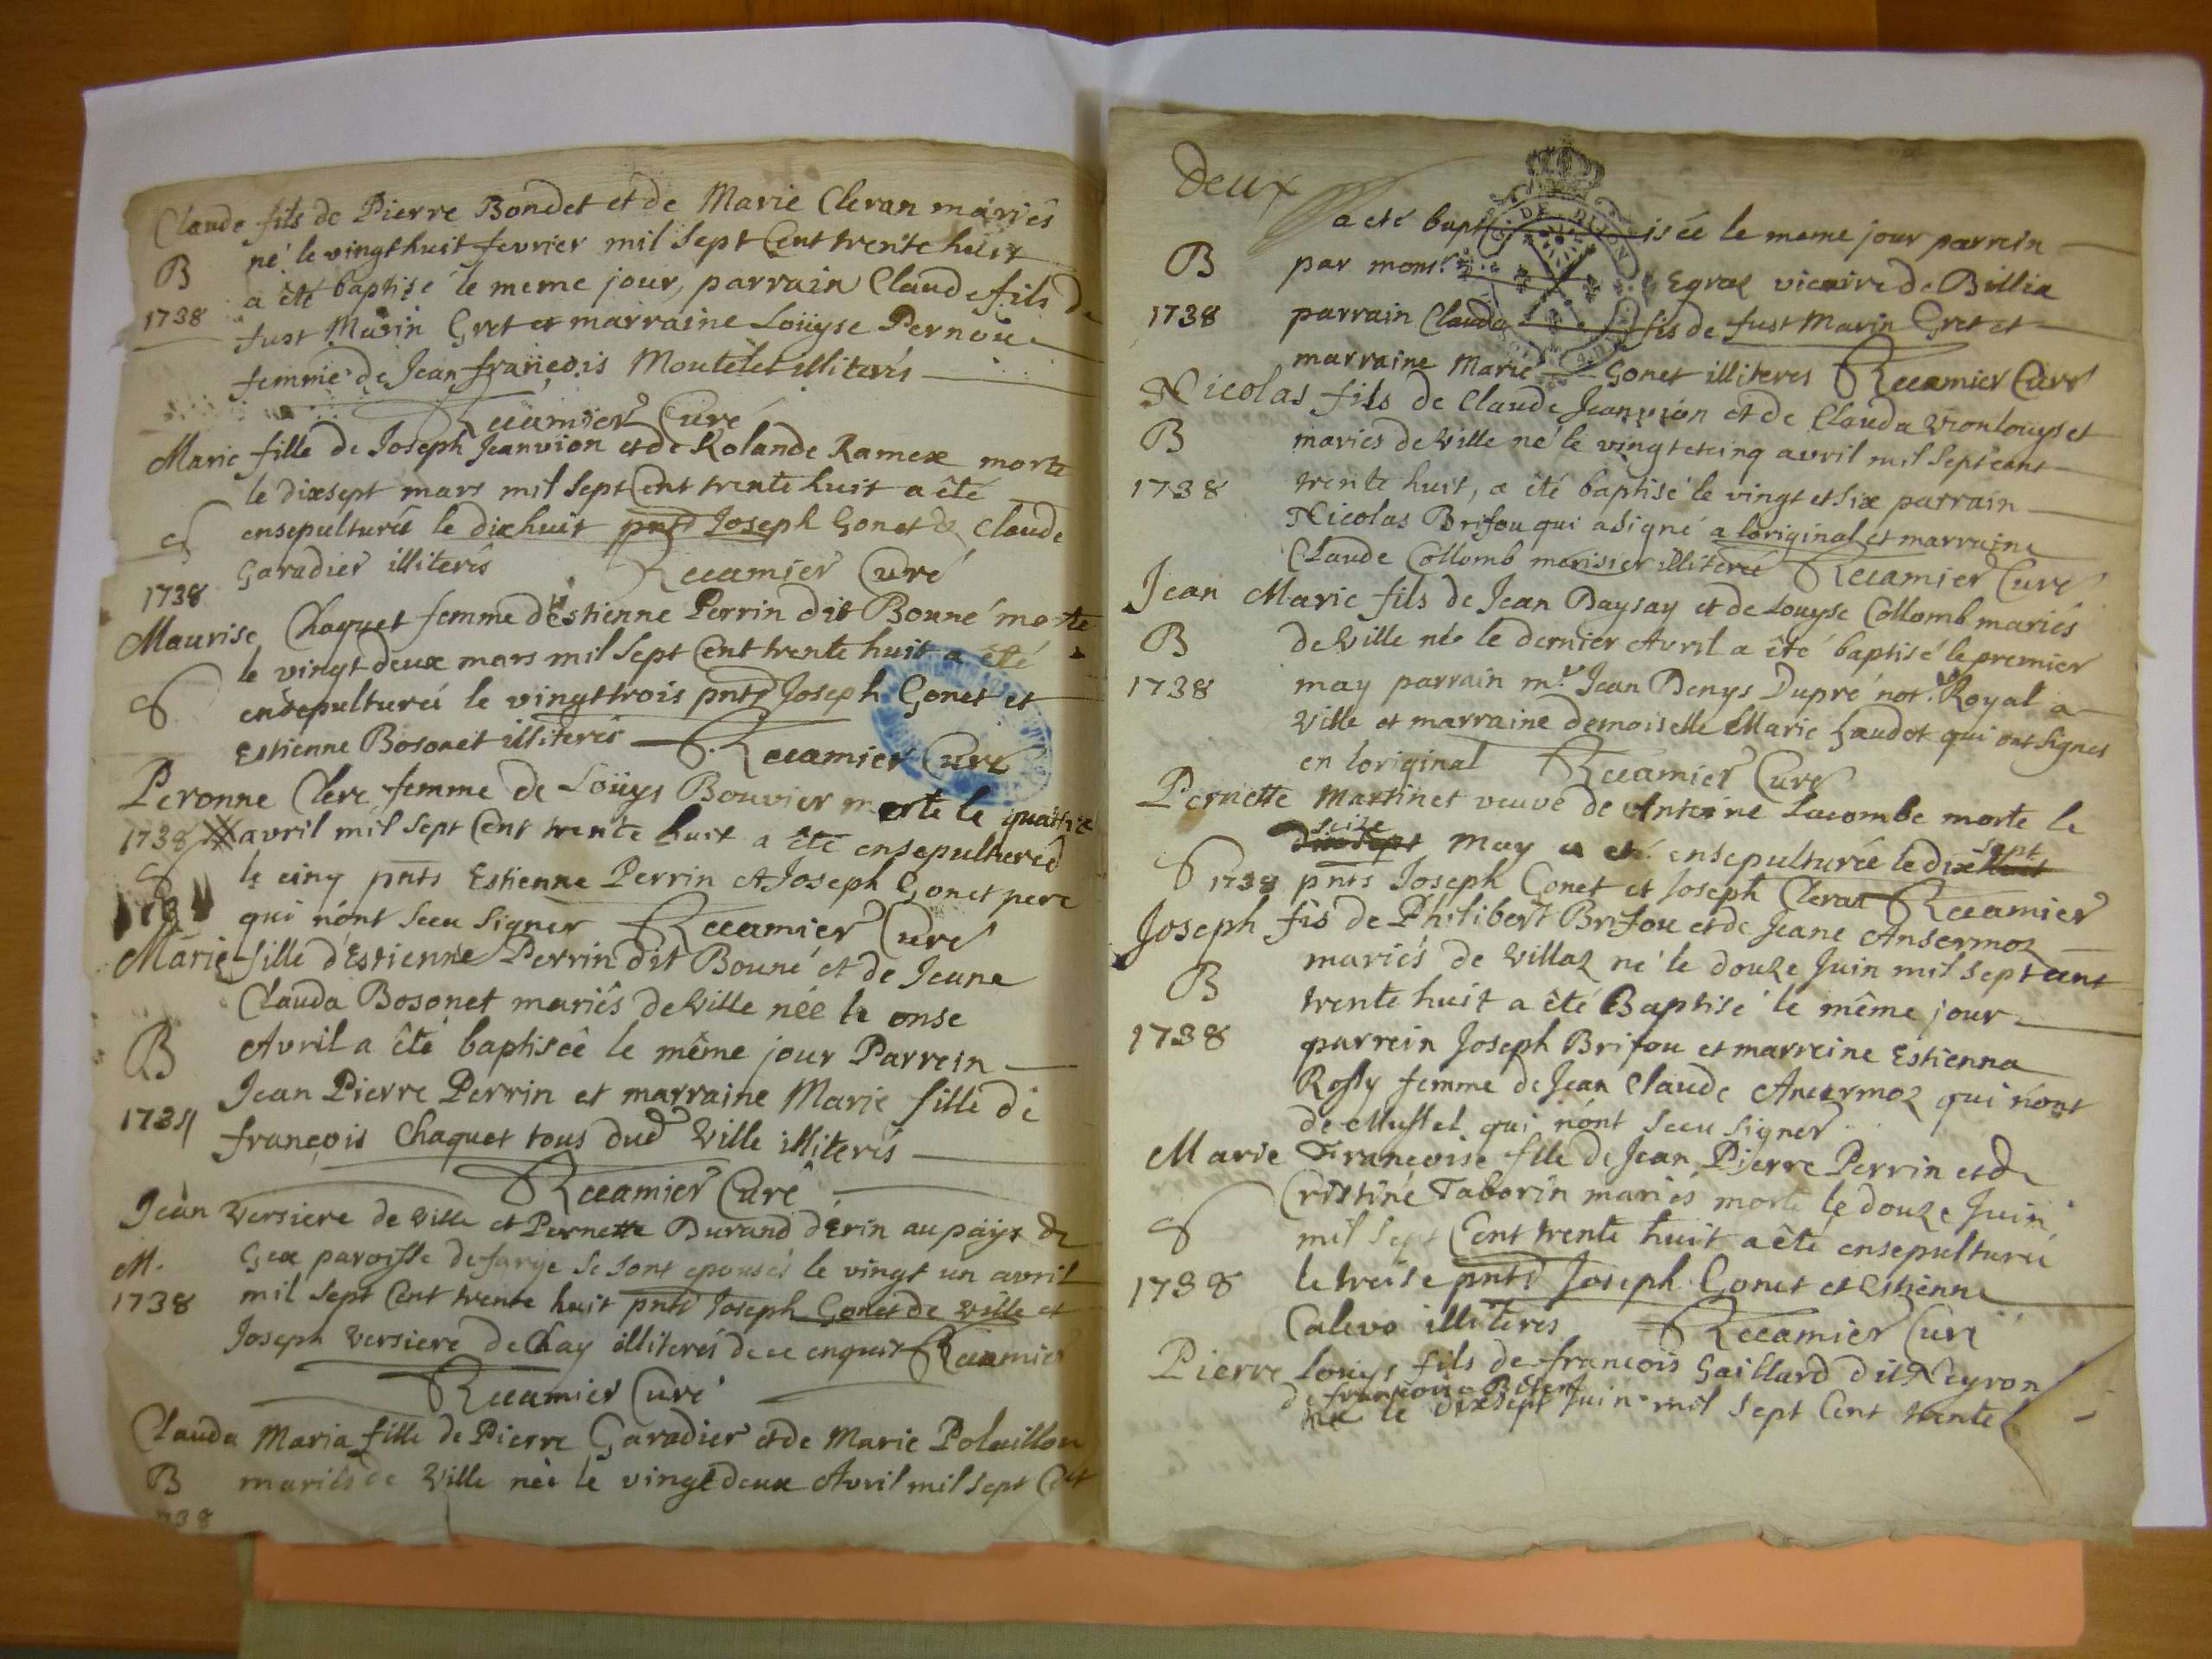 Claude fils de Pierre Bondet et de Marie Cleran mariés
né le vingt huit fevrier mil sept Cent trente huit
B
a été baptisé le meme jour, parrain Claude fils de
1738
fust Marin Gret et marraine Loüyse Pernou
femme de Jean françois Moutelet illiterés
Recamier Curé
Marie fille de Joseph Jeanvion et de Rolande Ramex morte
le dixsept mars mil sept Cent trente huit a été
S
ensepulturée le dixhuit pnts Joseph Gonet & Claude
Garadier illiterés Recamier Curé
1738
Maurise Chaquet femme d'Estienne Perrin dit Bouné morte
le vingt deux mars mil sept Cent trente huit a été
S
ensepulturée le vingt trois pnts Joseph Gonet et
Estienne Bosonet illiterés Recamier Curé
Peronne Clerc femme de Loüys Bouvier morte le quatrie
1738 avril mil sept Cent trente huit a été ensepulturée
S
le cinq pnts Estienne Perrin et Joseph Gonet pere
qui n'ont sceu signer Recamier Curé
Marie fille d'Estienne Perrin dit Bouné et de Jeane
Clauda Bosonet mariés de Ville née le onse
B
Avril a été baptiseé le même jour Parrein
Jean Pierre Perrin et marraine Marie fille de
1738
françois Chaquet tous dud Ville illiterés
Recamier Curé
Jean Versiere de Ville et Pernette Durand d'Erin au päys de
Gex paroisse de farge se sont epousés le vingt un avril
M.
1738
mil sept Cent trente huit pnts Joseph Gonet de Ville et
Joseph Versiere de Chay illiterés de ce enquis Recamier
Recamier Curé
Clauda Maria fille de Pierre Garadier et de Marie Polaillon
B
mariés de Ville née le vingt deux Avril mil sept Cent
1738
Deux
a eté baptisée le meme jour parrein
B
par monsr Egraz vicaire de Billia
1738
parrain Claude fis de fust Marin Gret et
marraine Marie Gonet illiteres Recamier Curé
Nicolas fils de Claude Jeanvion et de Clauda Vionlouyset
B
mariés de Ville né le vingt et cinq avril mil sept cent
1738
trente huit, a été baptisé le vingt et six parrain
Nicolas Brifou qui a signé a loriginal et marraine
Claude Collomb merisier illiterée Recamier Curé
Jean Marie fils de Jean Daysay et de Louyse Collomb mariés
B
de Ville née le dernier Avril a été baptisé le premier
1738
may parrain mr. Jean Denys Dupré not.re Royal a
Ville et marraine demoiselle Marie Gaudet qui ont signes
en loriginal Recamier Curé
Pernette Martinet veuve de Antoine Lacombe morte le
seize
dixsept may a eté ensepulturée le dixhuit
sept
S 1738
pnts Joseph Gonet et Joseph Cleran Recamier
Joseph fis de Philibert Brifou et de Jeane Ansermoz
mariés de Villaz né le douze Juin mil sept cent
B
trente huit a été Baptisé le même jour
1738
parrein Joseph Brifou et marreine Estienna
Rossy femme de Jean Claude Ancermoz qui n'ont
de Mussel qui n'ont sceu signer
Marie Françoise fille de Jean Pierre Perrin et de
Cristine Taborin mariés morte le douze Juin
S
mil sept Cent trente huit a été ensepulturée
1738
le treise pnts Joseph Gonet et Estienne
Calevo illiteres Recamier Curé
Pierre Loüys fils de françois Gaillard dit Neyron
de françoise
né le dixsept Juin mil sept Cent trente